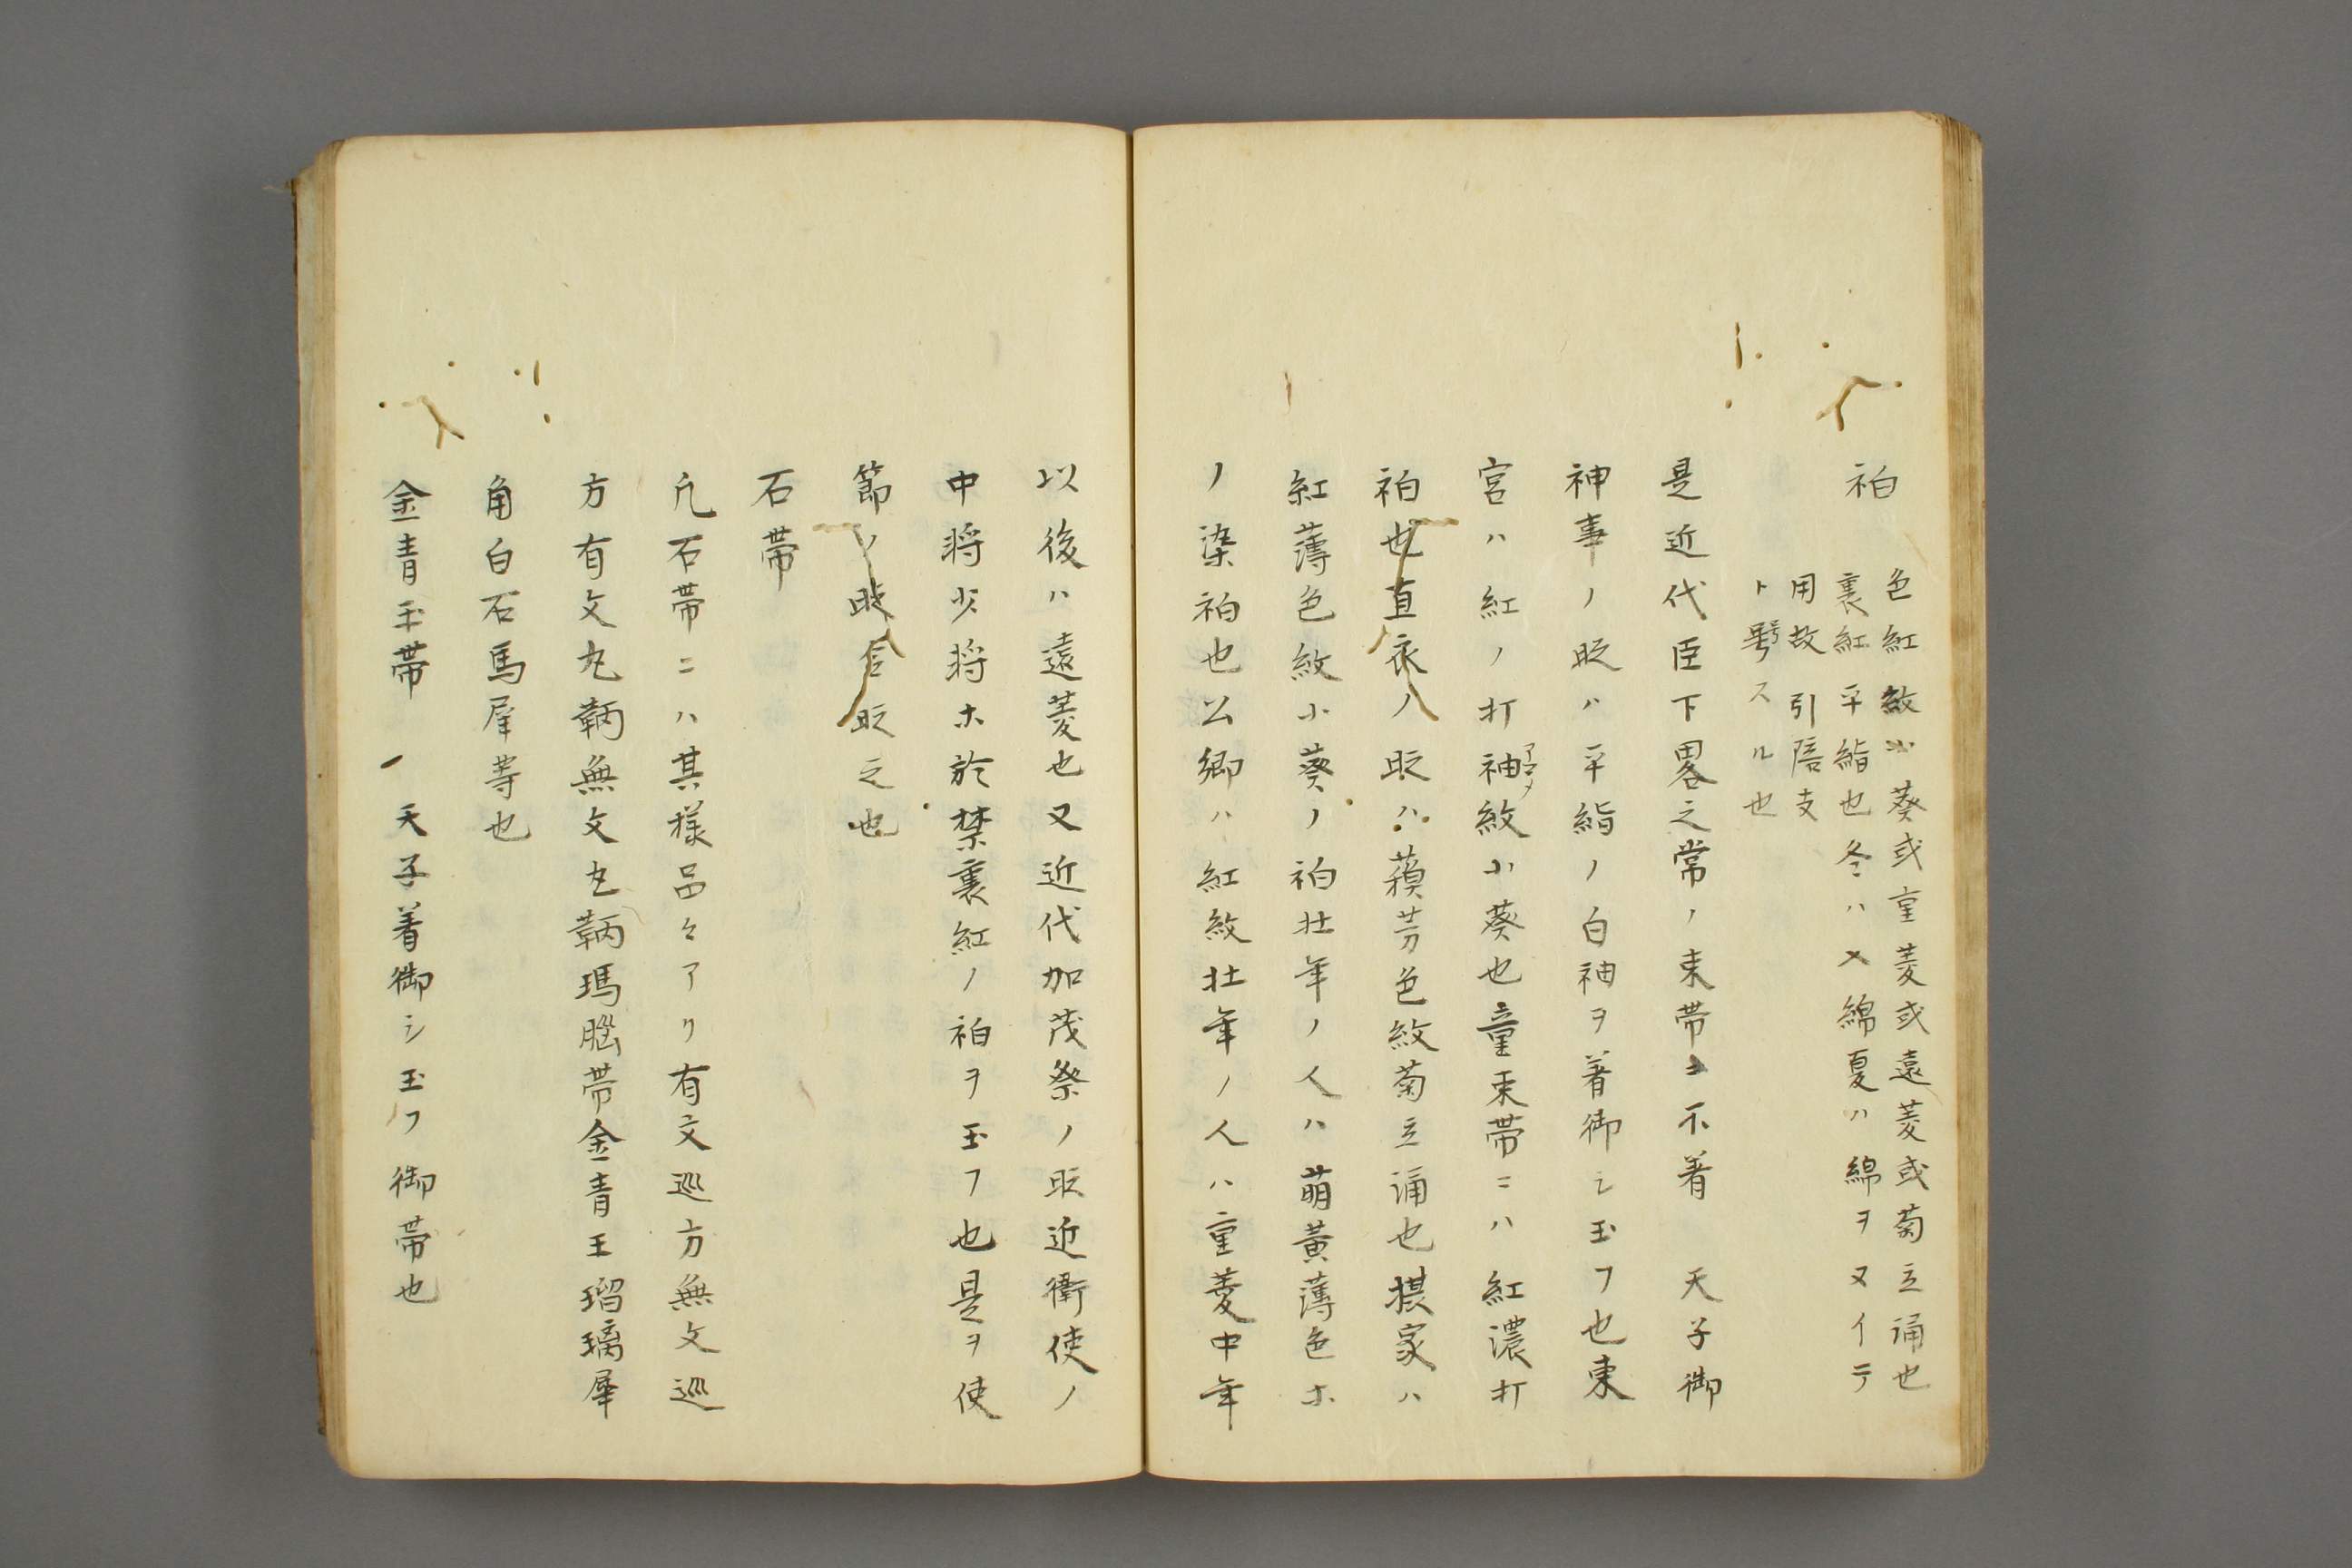 袙
色紅紋小葵或重菱或遠菱或菊立涌也
裏紅平絹也冬ハ入綿夏ハ綿ヲヌイテ
用故引倍支
ト号スル也
是近代臣下畧之常ノ束帯ニ不着 天子御
神事ノ時ハ平絹ノ白袙ヲ着御シ玉フ也東
宮ハ紅ノ打袙アコメ紋小葵也童束帯ニハ紅濃打
袙也直衣ノ時ハ蘓芳色紋菊立涌也摂家ハ
紅薄色紋小葵ノ袙壮年ノ人ハ萌黄薄色ホ
ノ染袙也公卿ハ紅紋壮年ノ人ハ重菱中年
以後ハ遠菱也又近代加茂祭ノ時近衛使ノ
中将少将ホ於禁裏紅ノ袙ヲ玉フ也是ヲ使
節ノ時着之也
石帯
凡石帯ニハ其様品々アリ有文巡方無文巡
方有文丸鞆無文丸鞆瑪腦帯金青玉瑠璃犀
角白石馬犀等也
金青玉帯 一 天子着御シ玉フ御帯也